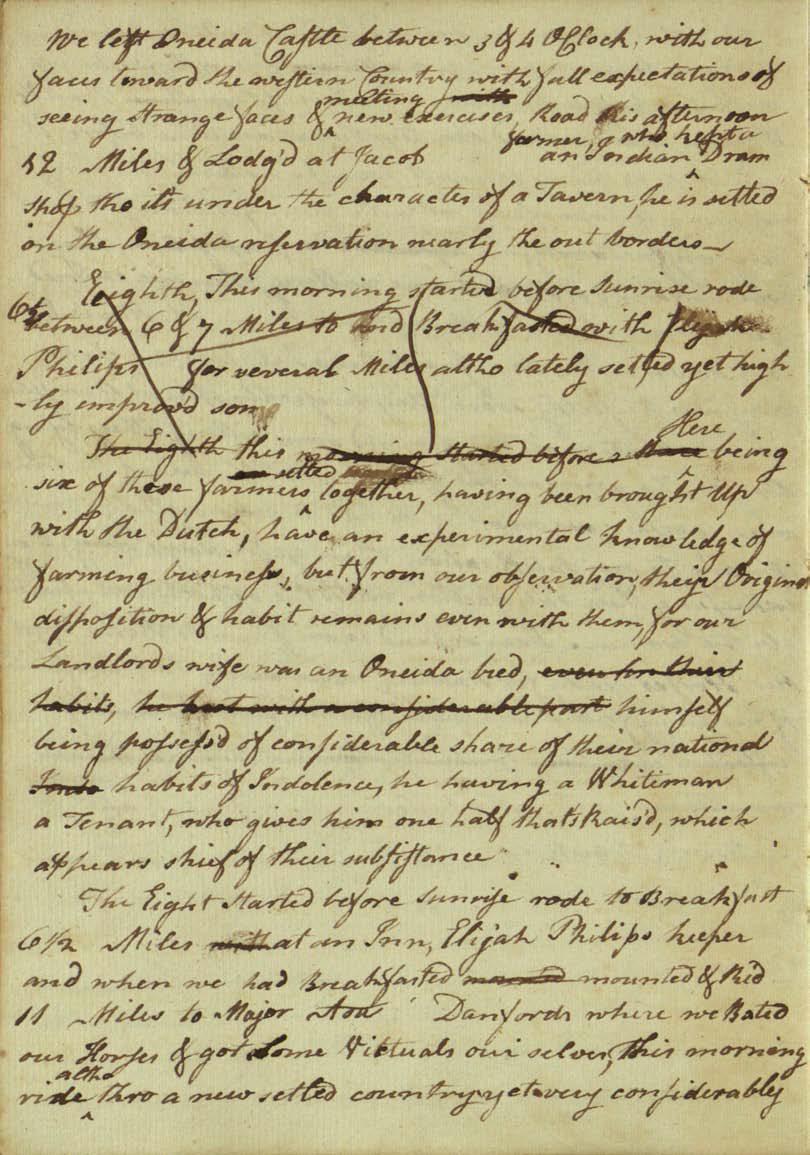 We left Oneida Castle between 3 & 4 OClock, with our
faces toward the western Country with full expectations of
seeing strange faces & meeting with new exercises, Road this afternoon
farmer, who kept a
12 Miles & Lodg'd at Jacob an Indian Dram
shop tho it's under the character of a Tavern, he is setled
on the Oneida reservation nearly the out borders
Eighth, This morning started before Sunrise rode
6½
between 6 & 7 Miles to and Breakfasted with Elijah
Philips for several Miles altho lately setled yet high
-ly improv'd som
The Eighth this morning started before Here being
setled
six of these farmers together, having been brought Up
with the Dutch, have an experimental knowledge of
farming business, but from our observation, their Original
disposition & habit remains even with them, for our
Landlords wife was an Oneida bred, even in their
habits, he but with a considerable part himself
being possess'd of considerable share of their national
Indo habits of Indolence, he having a Whiteman
a Tenant, who gives him one half thats Rais'd, which
appears chief of their subsistance
The Eight Started before Sunrise rode to Breakfast
6½ Miles with at an Inn, Elijah Philips keeper
and when we had Breakfasted mounted & Rid
11 Miles to Major Asa Danfords where we Bated
our Horses & got Some Victuals our selves, This morning
altho
ride thro a new setled country yet very considerably